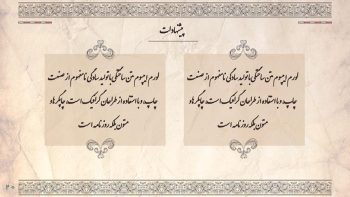 پیشنهادات
لورم ایپسوم متن ساختگی با تولید سادگی نامفهوم از صنعت
چاپ، و با استفاده از طراحان گرافیک است، چاپگرها و
متون بلکه روزنامه است
لورم ایپسوم متن ساختگی با تولید سادگی نامفهوم از صنعت
چاپ، و با استفاده از طراحان گرافیک است، چاپگرها و
متون بلکه روزنامه است